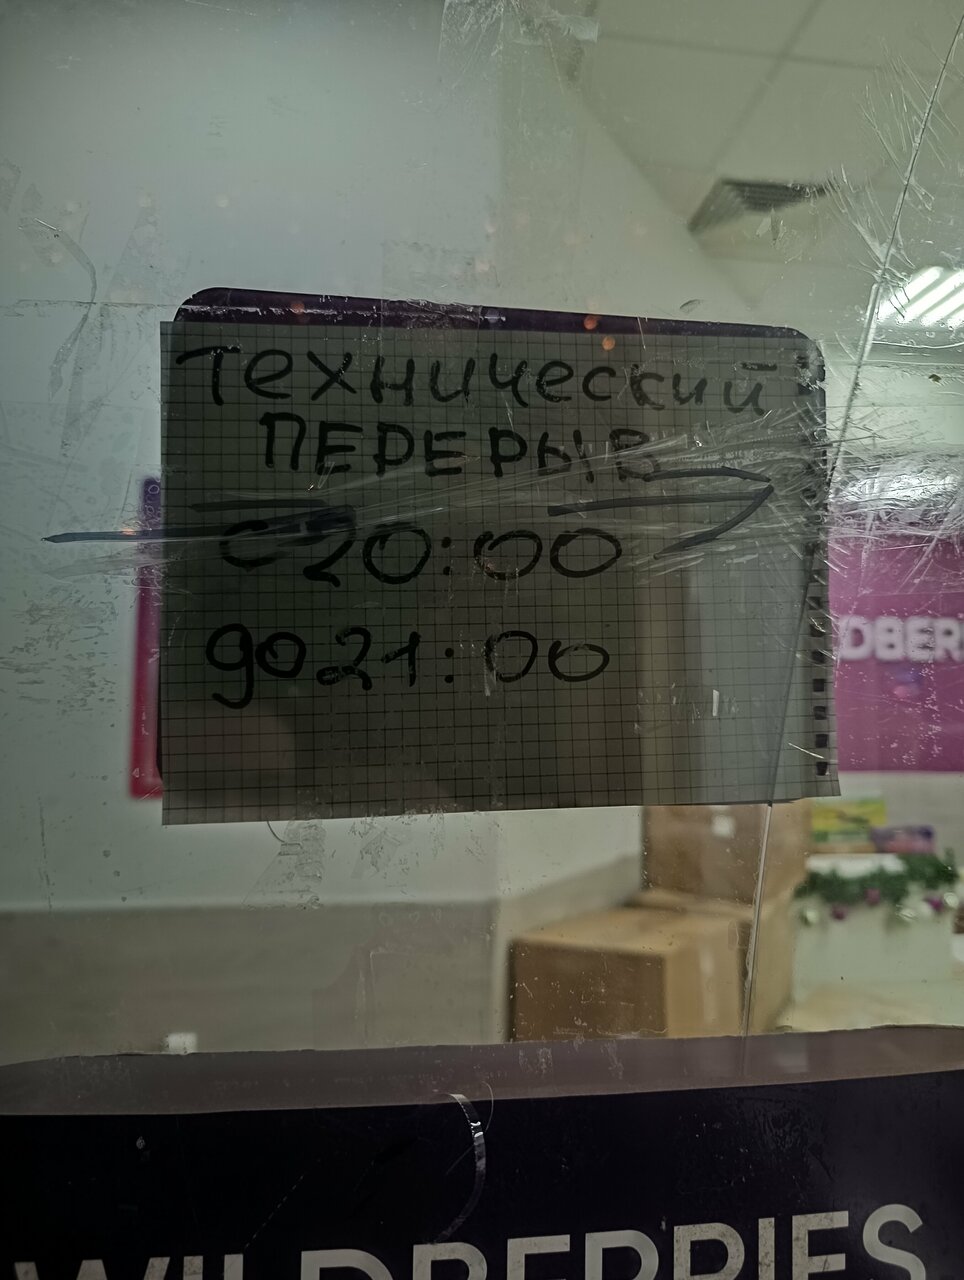 Технический
ПЕРЕРЫВ
С 20:00
до 21:00
DBER
WILDBERRIES